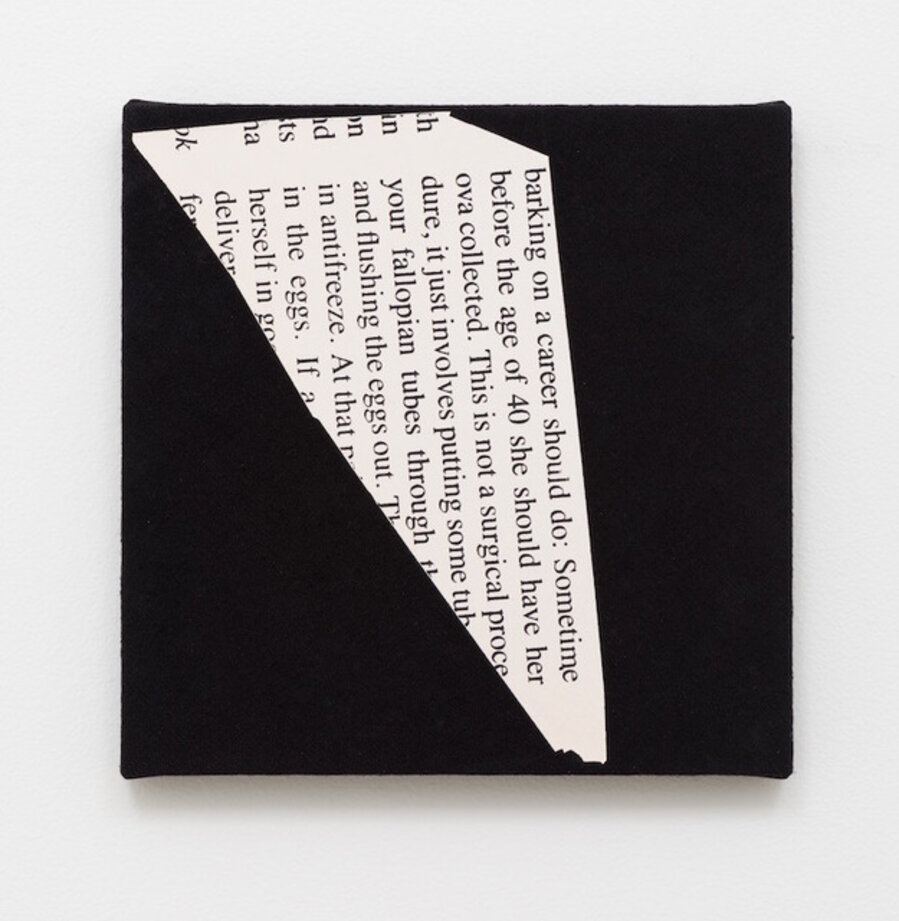 in
on
nd
sts
ok
barking on a career should do: Sometime
before the age of 40 she should have her
ova collected. This is not a surgical proce
dure, it just involves putting some tub
your fallopian tubes through th
and flushing the eggs out. Th
in antifreeze. At that
in the eggs. If a
herself in go
deliver
fer